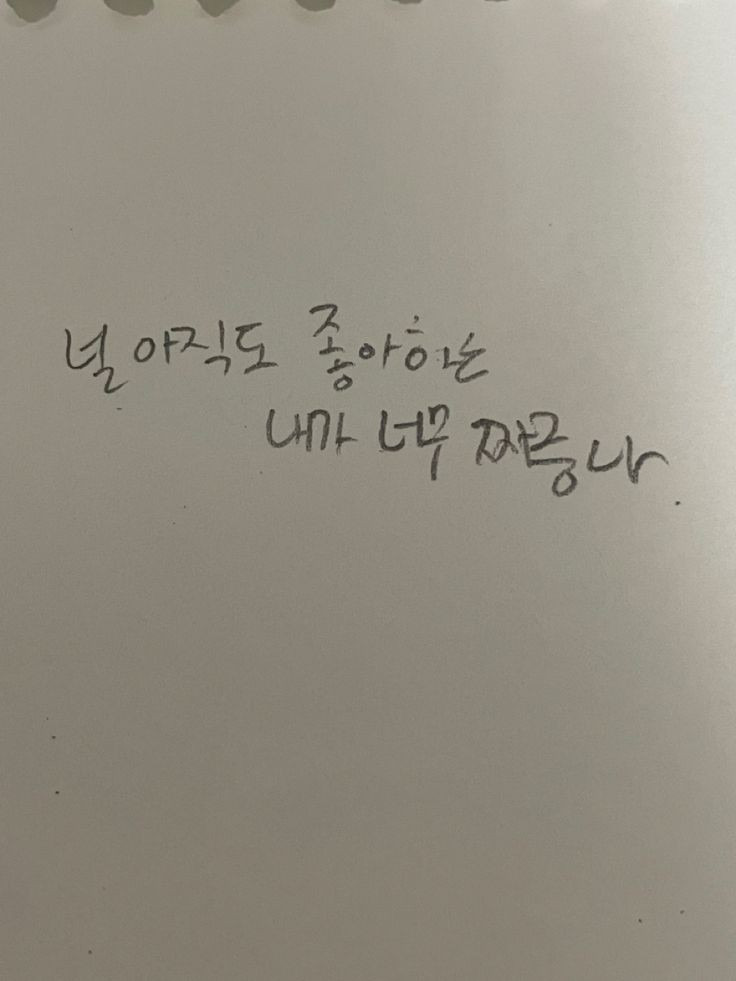 널 아직도 좋아하는
내가 너무 짜증나